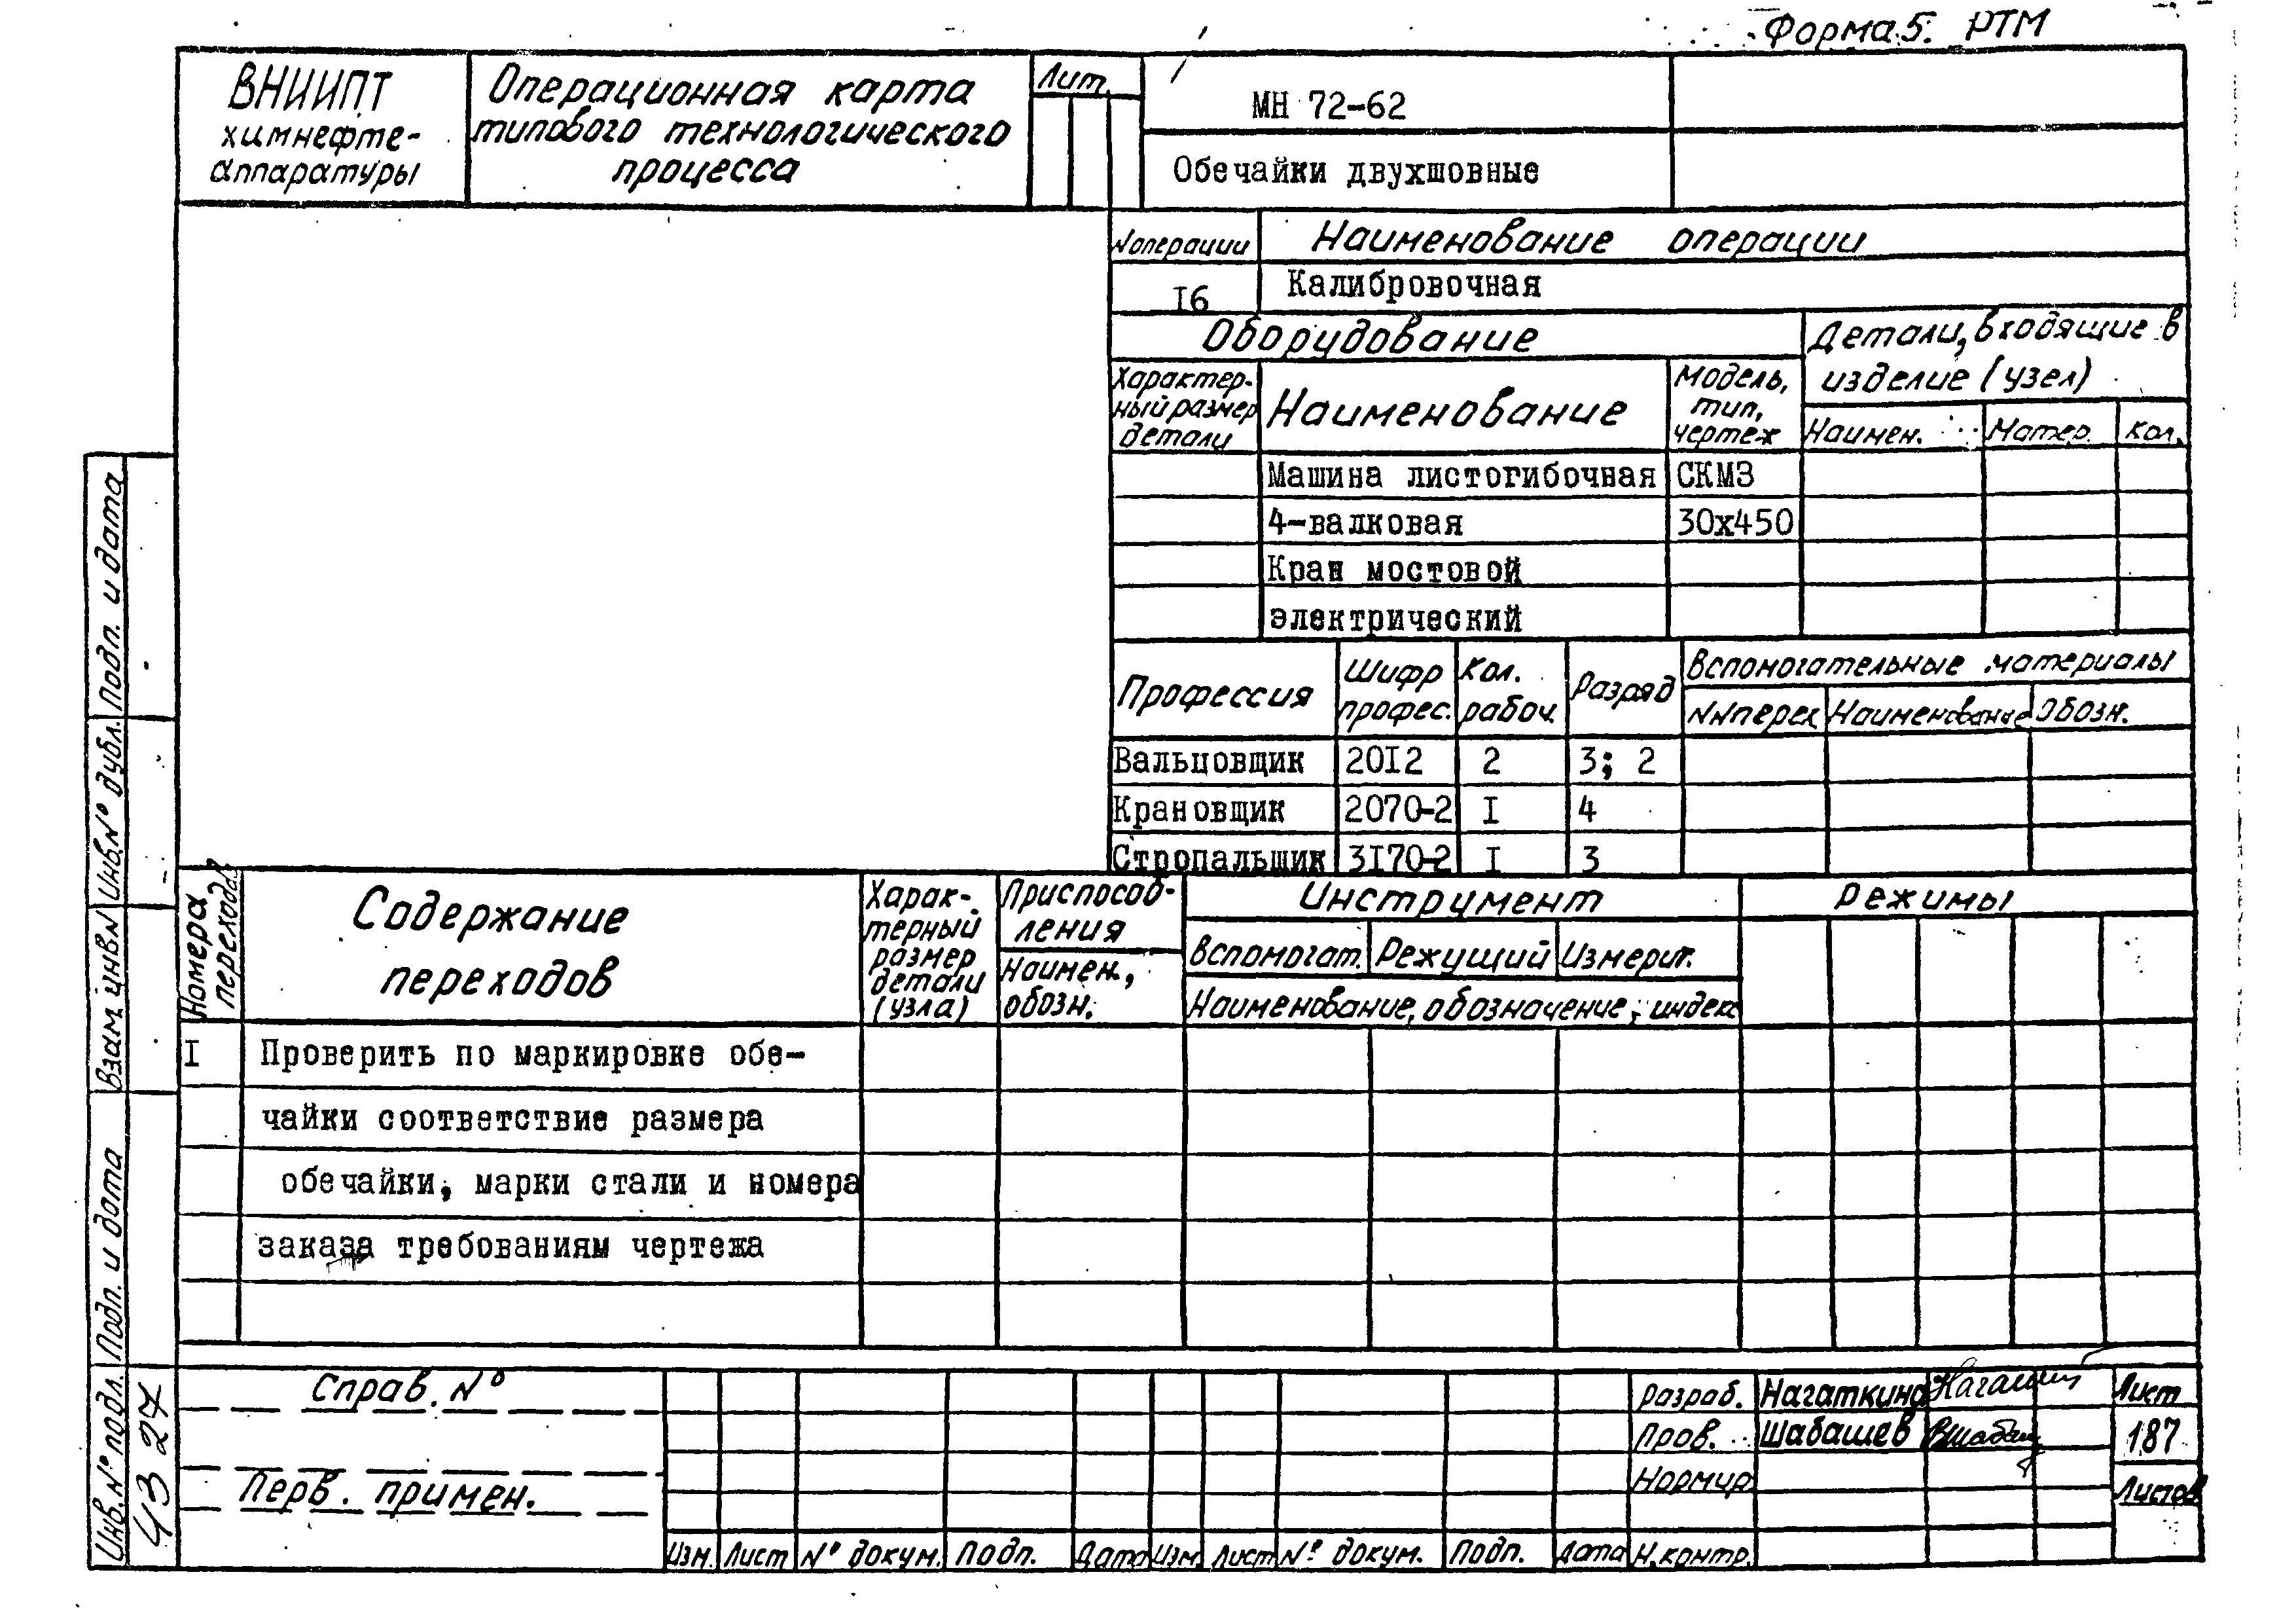 Форма 5. РТМ
ВНИИПТ
химнефте-
аппаратуры
Операционная карта
типового технологического
процесса
Лит.
МН 72-62
Обечайки двухшовные
N операции
Наименование операции
I6
Калибровочная
Оборудование
Детали, входящие в
изделие (узел)
Характер-
ный размер
детали
Наименование
Модель,
тип,
чертеж
Наимен.
Матер.
Кол.
Машина листогибочная
СКМЗ
4-валковая
30х450
Кран мостовой
электрический
Профессия
Шифр
профес.
Кол.
рабоч.
Разряд
Вспомогательные материалы
NN перех
Наименование
Обозн.
Вальцовщик 20I2 2 3; 2
Крановщик 2070-2 I 4
Стропальщик 3I70-2 I 3
Номера
переходов
Содержание
переходов
Харак-
терный
размер
детали
(узла)
Приспособ-
ления
Наимен.,
обозн.
Инструмент
Вспомогат.
Режущий
Измерит.
Наименование, обозначение, индекс
Режимы
I Проверить по маркировке обе-
чайки соответствие размера
обечайки, марки стали и номера
заказа требованиям чертежа
Подп. и дата
Инв. № дубл.
Взам. инв N
Подп. и дата
Инв. № подл.
4327
Справ. №
Перв. примен.
Изм.
Лист
№ докум.
Подп.
Дата
Изм.
Лист
№ докум.
Подп.
Дата
Разраб. Нагаткина
Пров. Шабашев
Нормир.
Н. контр.
Лист
187
Листов